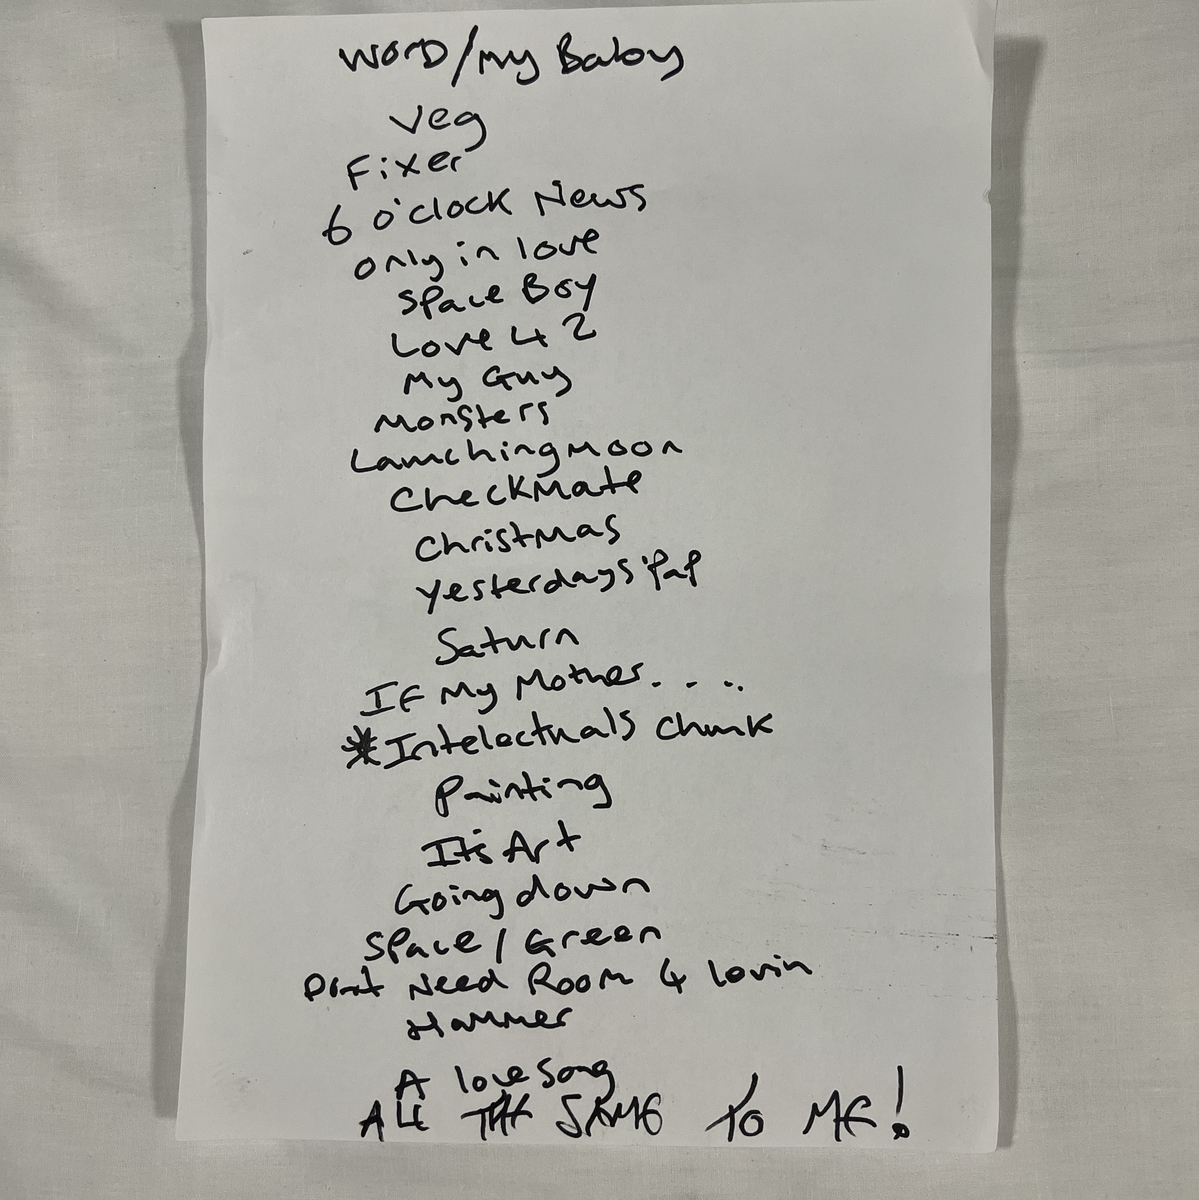 WORD/My Baby
Veg
Fixer
6 o'clock News
only in love
Space Boy
Love 4 2
My Guy
Monsters
Launching Moon
CheckMate
Christmas
Yesterdays Pap
Saturn
If My Mother. . . .
*Intelectuals Chunk
Painting
Its Art
Going down
Space / Green
Dont Need Room 4 lovin
Hammer
A love Song
ALL THE SAME TO ME!